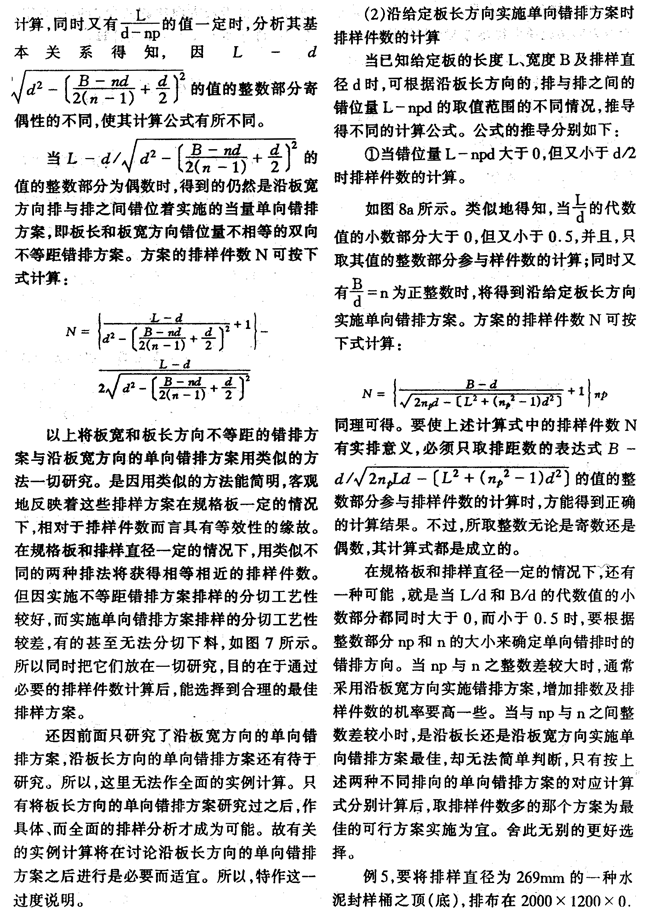 计算,同时又有L/d-np的值一定时,分析其基
本关系得知,因 L - d
√d² - [(B - nd)/(2(n - 1)) + d/2]² 的值的整数部分寄
偶性的不同,使其计算公式有所不同。
当 L - d/√d² - [(B - nd)/(2(n - 1)) + d/2]² 的
值的整数部分为偶数时,得到的仍然是沿板宽
方向排与排之间错位着实施的当量单向错排
方案,即板长和板宽方向错位量不相等的双向
不等距错排方案。方案的排样件数 N 可按下
式计算:
N = {(L - d)/(d² - [(B - nd)/(2(n - 1)) + d/2]²) + 1} -
(L - d)/(2√d² - [(B - nd)/(2(n - 1)) + d/2]²)
以上将板宽和板长方向不等距的错排方
案与沿板宽方向的单向错排方案用类似的方
法一切研究。是因用类似的方法能简明,客观
地反映着这些排样方案在规格板一定的情况
下,相对于排样件数而言具有等效性的缘故。
在规格板和排样直径一定的情况下,用类似不
同的两种排法将获得相等相近的排样件数。
但因实施不等距错排方案排样的分切工艺性
较好,而实施单向错排方案排样的分切工艺性
较差,有的甚至无法分切下料,如图 7 所示。
所以同时把它们放在一切研究,目的在于通过
必要的排样件数计算后,能选择到合理的最佳
排样方案。
还因前面只研究了沿板宽方向的单向错
排方案,沿板长方向的单向错排方案还有待于
研究。所以,这里无法作全面的实例计算。只
有将板长方向的单向错排方案研究过之后,作
具体、而全面的排样分析才成为可能。故有关
的实例计算将在讨论沿板长方向的单向错排
方案之后进行是必要而适宜。所以,特作这一
过度说明。
(2)沿给定板长方向实施单向错排方案时
排样件数的计算
当已知给定板的长度 L、宽度 B 及排样直
径 d 时,可根据沿板长方向的,排与排之间的
错位量 L-npd 的取值范围的不同情况,推导
得不同的计算公式。公式的推导分别如下:
①当错位量 L-npd 大于 0,但又小于 d/2
时排样件数的计算。
如图 8a 所示。类似地得知,当L/d的代数
值的小数部分大于 0,但又小于 0.5,并且,只
取其值的整数部分参与样件数的计算;同时又
有B/d=n 为正整数时,将得到沿给定板长方向
实施单向错排方案。方案的排样件数 N 可按
下式计算:
N = {(B - d)/√2nₚd - [L² + (nₚ² - 1)d²] + 1}np
同理可得。要使上述计算式中的排样件数 N
有实排意义,必须只取排距数的表达式 B -
d/√2nₚLd - [L² + (nₚ² - 1)d²] 的值的整
数部分参与排样件数的计算时,方能得到正确
的计算结果。不过,所取整数无论是寄数还是
偶数,其计算式都是成立的。
在规格板和排样直径一定的情况下,还有
一种可能,就是当 L/d 和 B/d 的代数值的小
数部分都同时大于 0,而小于 0.5 时,要根据
整数部分 np 和 n 的大小来确定单向错排时的
错排方向。当 np 与 n 之整数差较大时,通常
采用沿板宽方向实施错排方案,增加排数及排
样件数的机率要高一些。当与 np 与 n 之间整
数差较小时,是沿板长还是沿板宽方向实施单
向错排方案最佳,却无法简单判断,只有按上
述两种不同排向的单向错排方案的对应计算
式分别计算后,取排样件数多的那个方案为最
佳的可行方案实施为宜。舍此无别的更好选
择。
例 5,要将排样直径为 269mm 的一种水
泥封样桶之顶(底),排布在 2000×1200×0.